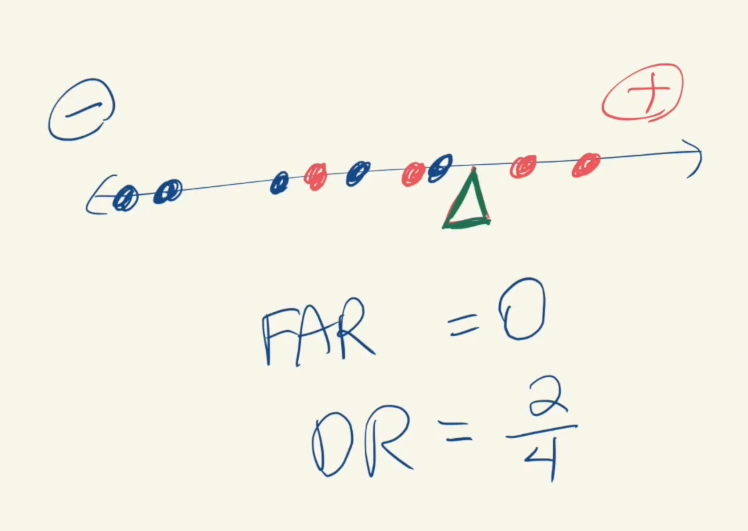 − +
FAR = 0
DR = 2/4